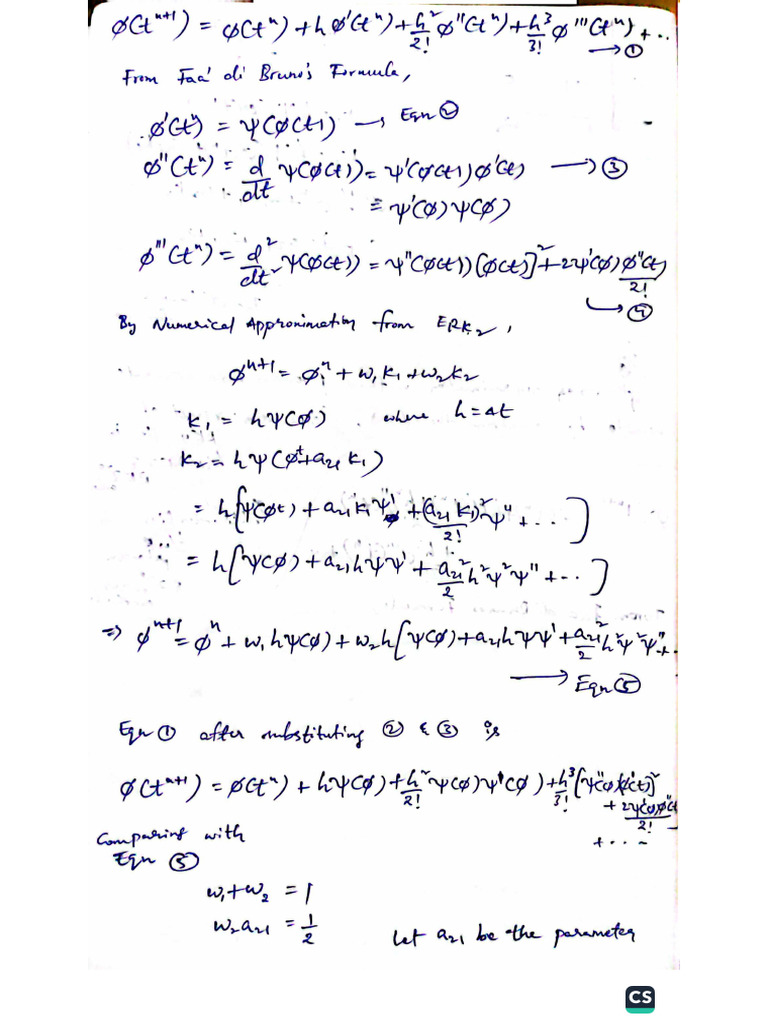 ø(tⁿ⁺¹) = ø(tⁿ) + h ø'(tⁿ) + h²/2! ø''(tⁿ) + h³/3! ø'''(tⁿ) + .. → ①
From Faa' di Bruno's Formula,
ø'(tⁿ) = ψ(ø(t)) → Eqn ②
ø''(tⁿ) = d/dt ψ(ø(t)) = ψ'(ø(t)) ø'(t) → ③
= ψ'(ø) ψ(ø)
ø'''(tⁿ) = d²/dt² ψ(ø(t)) = ψ''(ø(t)) [ø(t)]² + 2ψ'(ø) ø''(t)/2! → ④
By Numerical Approximation from ERK₂,
øⁿ⁺¹ = øⁿ + w₁k₁ + w₂k₂
k₁ = hψ(ø) where h = Δt
k₂ = hψ(øᵗ + a₂₁k₁)
= h[ψ(øt) + a₂₁k₁ψ' + (a₂₁k₁)²/2! ψ'' + ...]
= h[ψ(ø) + a₂₁hψψ' + a₂₁²/2 h²ψ²ψ'' + ...]
⇒ øⁿ⁺¹ = øⁿ + w₁hψ(ø) + w₂h[ψ(ø) + a₂₁hψψ' + a₂₁²/2 h²ψ²ψ'' + ..
→ Eqn ⑤
Eqn ① after substituting ② & ③ is
ø(tⁿ⁺¹) = ø(tⁿ) + hψ(ø) + h²/2! ψ(ø)ψ'(ø) + h³/3! [ψ''(ø)(ø'(t)]² + 2ψ'(ø)ø''(t/2! + ...
Comparing with
Eqn ⑤
w₁ + w₂ = 1
w₂a₂₁ = 1/2 Let a₂₁ be the parameter
CS